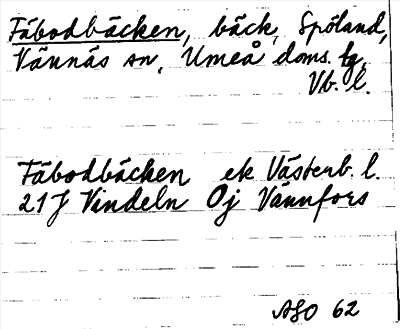 Fäbodbäcken, bäck, Spöland,
Vännäs sn, Umeå doms. fg,
Vb. l.
Fäbodbäcken ek Västerb. l.
21J Vindeln Oj Vännfors
ASO 62